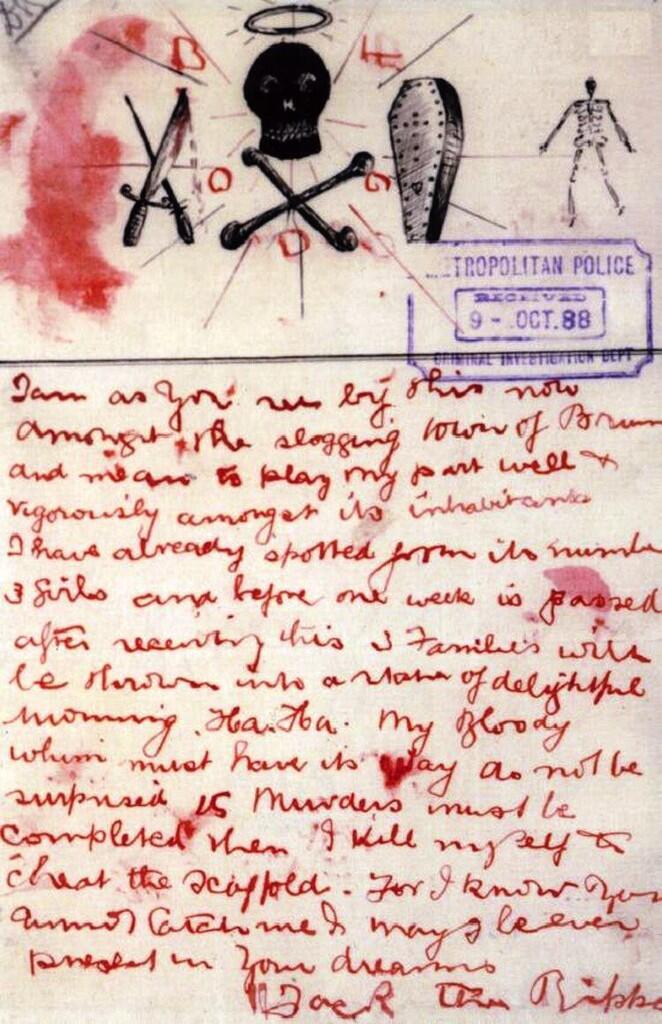 B E
O G
D
METROPOLITAN POLICE
RECEIVED
9 - OCT. 88
CRIMINAL INVESTIGATION DEPT
I am as you see by this now
amongst the slogging town of Brum
and mean to play my part well &
vigorously amongst its inhabitants
I have already spotted from its numbe
3 Girls and before one week is passed
after receiving this 3 Families will
be thrown into a state of delightful
mourning. Ha. Ha. My Bloody
whim must have its way do not be
surprised 15 Murders must be
completed then I kill myself to
cheat the scaffold. For I know you
cannot catch me & may I be ever
present in your dreams
Jack the Rippe